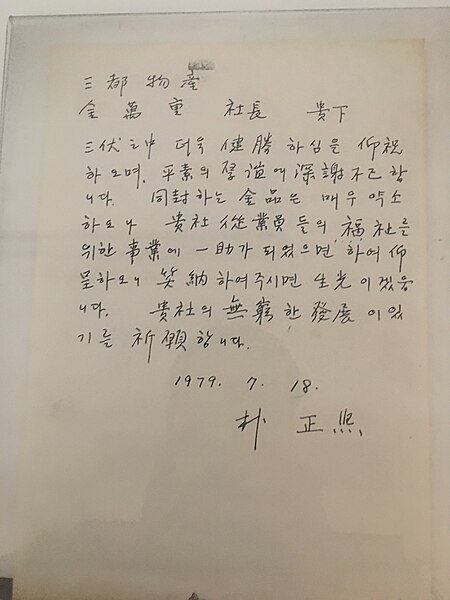 三都物産
金萬重 社長 貴下
三伏之中 더욱 健勝 하심을 仰祝
하오며, 平素의 厚誼에 深謝不已 합
니다. 同封하는 金品은 매우 약소
하오나 貴社 從業員 들의 福祉를
위한 事業에 一助가 되었으면 하여 仰
呈하오니 笑納 하여주시면 生光이겠습
니다. 貴社의 無窮한 發展이 있
기를 祈願합니다.
1979. 7. 18.
朴 正 熙